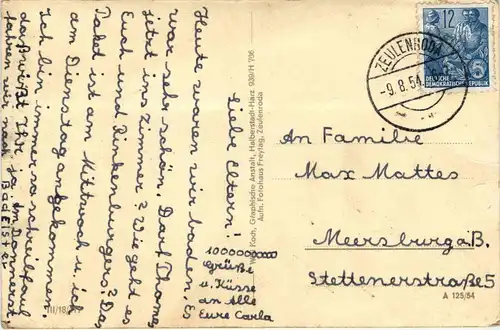 Liebe Eltern!
Heute waren wir baden. Es
war sehr schön. Darf Thomas
jetzt ins Zimmer? Wie geht es
Euch und Rinkenburgers? Das
Paket ist am Mittwoch u. ich
am Dienstag angekommen.
Ich bin immer so schreibfaul
daß wißt Ihr ja. Am Donnerst.
fahren wir nach
Bad Elster
1000000000
Grüße
u. Küsse
an Alle
Eure Carla
Koch, Graphische Anstalt, Halberstadt-Harz 939/H 706
Aufn. Fotohaus Freytag, Zeulenroda
III/18/
12
DEUTSCHE
DEMOKRATISCHE REPUBLIK
ZEULENRODA
-9.8.54
An Familie
Max Mattes
Meersburg a. B.
Stettenerstraße 5
A 125/54